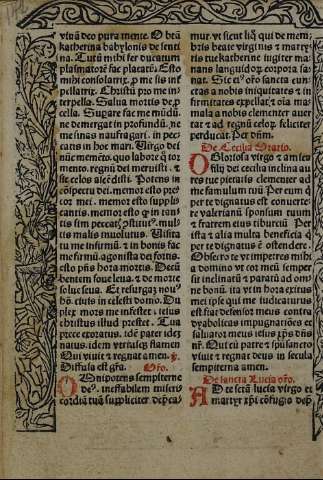 viuā deo pura mente. O btā
katherina babylonis de senti
na. Tutū mihi fer ducatum
plasmatorē fac placatū. Esto
mihi consolatrix. ꝓ me sis in
pellatrix. Christū pro me in
terpella. Salua mortis de ꝓ
cella. Supare fac me mūdū.
ne demergat in profundū. ne
me sinas naufragari. in pec
catis in hoc mari. Uirgo dei
nūc memēto. quo labore ꝙ tor
mento. regnū dei meruisti. et
sic celos ascēdisti. Potens in
cōspectu dei. memor esto pre
cor mei. memor esto suppli
cantis. memor esto ꝙ in tan
tis sim peccatis cōstitut⁹. mul
tis malis inuolutus. Uisita
tu me infirmū. et in bonis fac
me firmū. agonista dei fortis.
esto pn̄s hora mortis. Decu
bentem foue leua. et de morte
solue seua. Et resurgā nou⁹
hō. ciuis in celesti domo. Du
plex mors me infestet. telus
christus illud prestet. Tua
prece exoratus. idē pater idē
natus. idem vtriusqꝫ flamen
Qui viuit et regnat amen. ℣.
Diffusa est grā. Orō.
Omnipotens sempiterne
deꝰ. ineffabilem miseri
cordiā tuā suppliciter depca-
mur. vt sicut liqͦr qui de mem
bris beate virginis et martyr
ris tue katherine iugiter ma
nans languidoꝝ corpora sa
nat. Sic eiꝰ orō sancta cun
ctas a nobis iniquitates et in
firmitates expellat. et oīa ma
mala a nobis clementer auer
tat et ad regna celoꝝ feliciter
perducat. Per dn̄m.
De Cecilia Oratio.
O Gloriosa virgo et ami ce
filij dei cecilia inclina au
res tue pietatis clementer ad
me famulum tuū Per eum q
per te dignatus est conuerte
re valerianū sponsum tuum
et fratrem eius tiburtiū. Per
ista et alia multa beneficia q̄
per te dignatus ē ostendere.
Obsecro te vt impetres mihi
a domino vt cor meū semper
sit inclinatū et paratū ad om
ne bonū. ita vt in hora exitus
mei ipse qui me iudicaturus
est fiat defensor meus contra
dyabolicas impugnatiões et
saluator meus iesus xp̄s dn̄s
nr̄. Qui cū patre et spūsancto
viuit et regnat deus in secula
sempiterna amen.
De sancta Lucia orō.
Ad te sctā lucia virgo et
martyr xp̄i cōfugio dep̄-